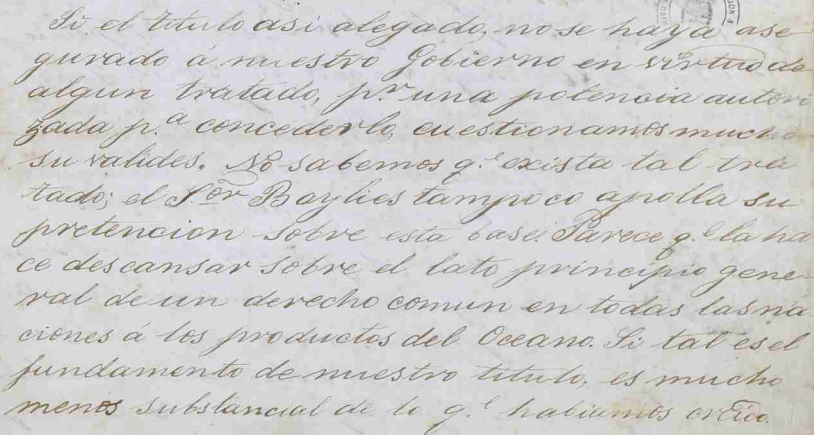 Si el titulo asi alegado, no se haya ase
gurado á nuestro Gobierno en virtud de
algun tratado, p.r una potencia autori
zada p.a concederlo, cuestionamos mucho
su valides. No sabemos q.e exista tal tra
tado; el S.or Baylies tampoco apolla su
pretencion sobre esta base. Parece q.e la ha
ce descansar sobre el lato principio gene
ral de un derecho comun en todas las na
ciones á los productos del Oceano. Si tal es el
fundamento de nuestro titulo, es mucho
menos substancial de lo q.e habiamos creido.